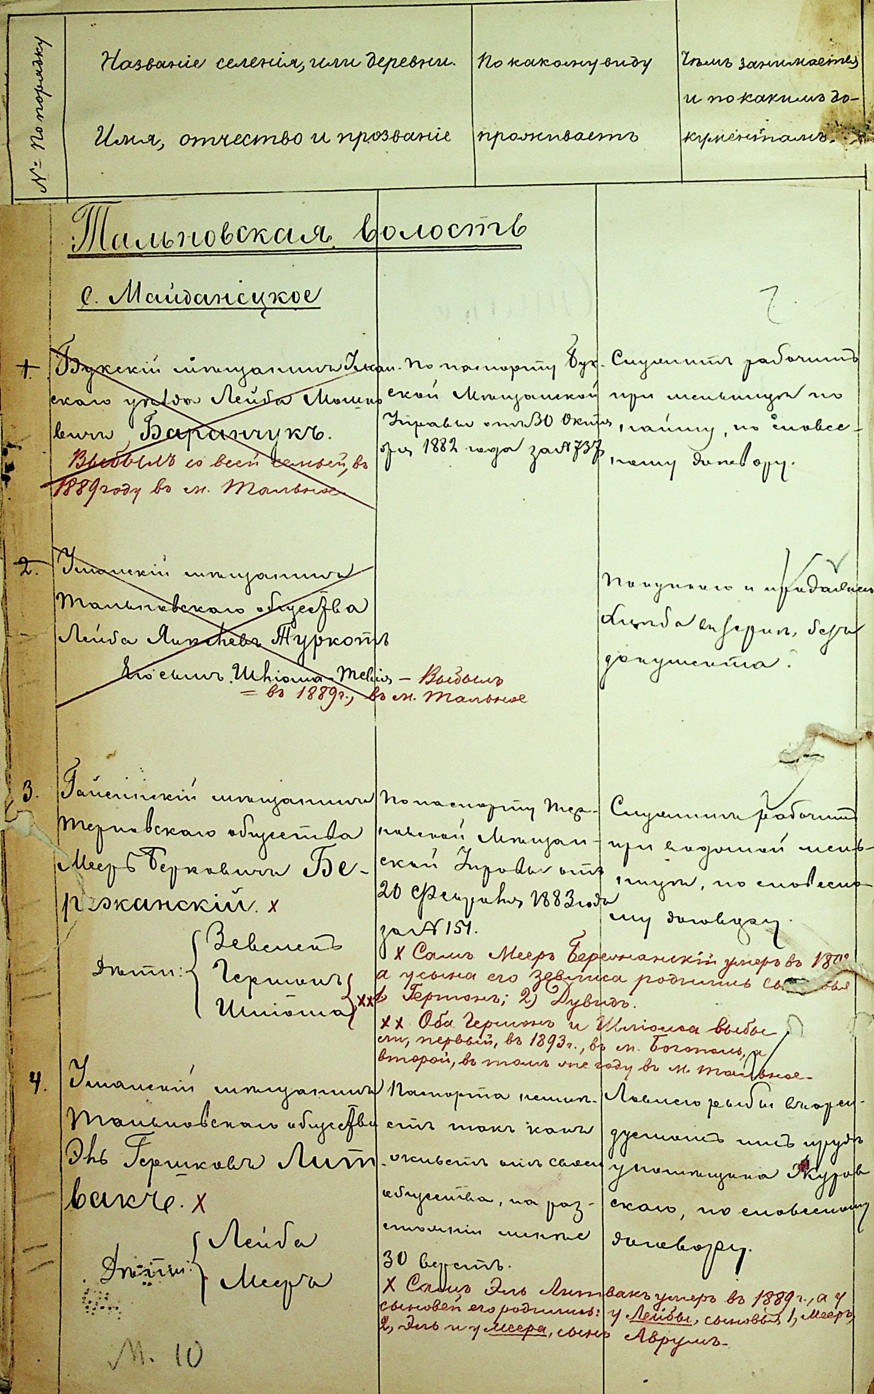 № По порядку
Названіе селенія, или деревни.
Имя, отчество и прозваніе
По какому виду
проживаетъ
Чѣмъ занимается
и по какимъ до-
кументамъ.
Тальновская волость
с. Майданецкое
1.
Букскій мѣщанинъ Уман-
скаго уѣзда Лейба Мошко
вичъ Баранчукъ.
Выбылъ со всей семьей, въ
1889 году въ м. Тальное
По паспорту Бук-
ской Мѣщанской
Управы отъ 30 Октя
бря 1882 года за № 737
Служитъ рабочимъ
при мельницѣ по
найму, по словес-
ному договору.
2.
Уманскій мѣщанинъ
Тальновскаго общества
Лейба Янкелевъ Туркотъ
Его сынъ Шліома - Выбылъ
= въ 1889 г., въ м. Тальное
Покупкою и продажею
хлѣба въ зернѣ, безъ
документа.
3.
мѣщанинъ
Терновскаго общества
Мееръ Берковичъ Бе-
режанскій. х
Дѣти:
Гершонъ
Шліома хх
По паспорту Тер-
новской Мѣщан-
ской Управы отъ
20 Февраля 1883 года
за № 151.
Служитъ рабочимъ
при водяной мель-
ницѣ, по словесно-
му договору.
х Самъ Мееръ Бережанскій умеръ въ
а у сына его родились
Гершонъ; 2) Дувидъ.
хх Оба Гершонъ и Шліома выбы-
ли, первый, въ 1893 г., въ м. Богополь, а
второй, въ томъ же году въ м. Тальное.
4.
Уманскій мѣщанинъ
Тальновскаго общества
Эль Гершковъ Лит-
вакъ. х
Дѣти:
Лейба
Мееръ
Паспорта неимѣ-
етъ такъ какъ
отъ своего
общества, на раз-
стояніи менѣе
30 верстъ.
Ловлею рыбы въ арен-
дуемомъ имъ прудѣ
у помѣщика Журов
скаго, по словесному
договору.
х Самъ Эль Литвакъ умеръ въ 1889 г., а у
сыновей его родились: у Лейбы, сыновья 1, Мееръ,
2, Эль и у Меера, сынъ Аврумъ.
М. 10